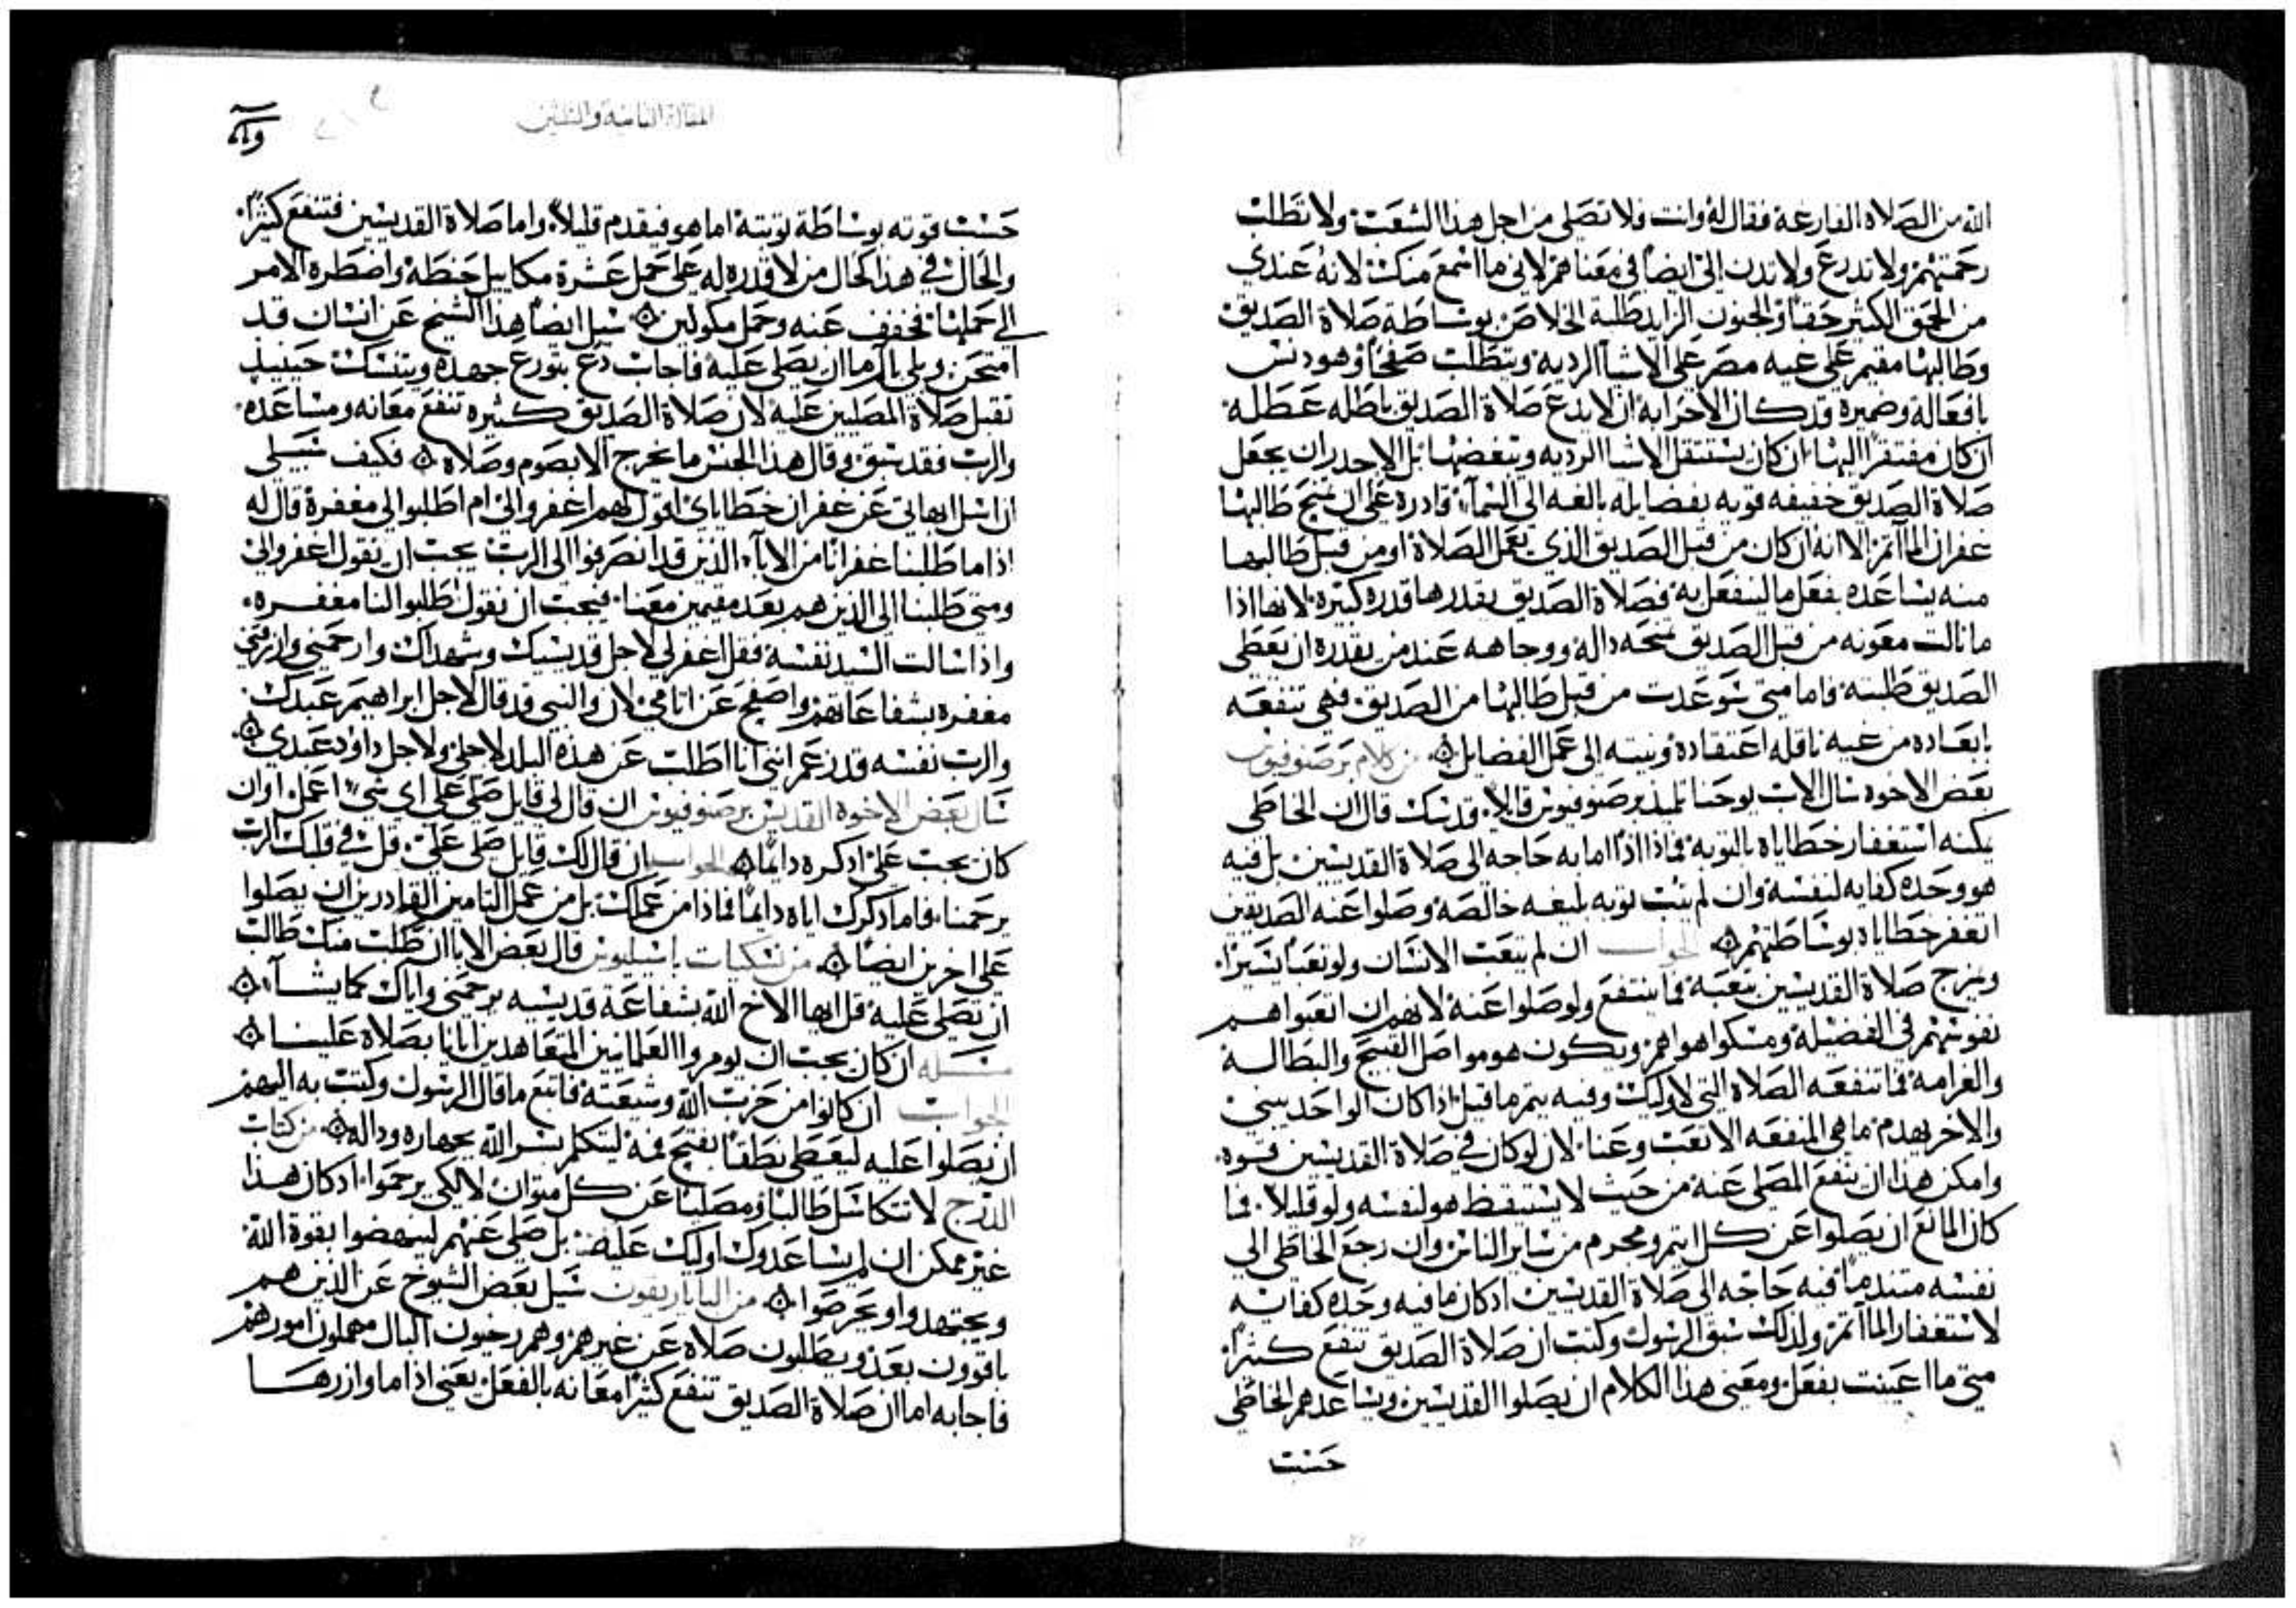 الله من الصلاه الفارغة فقال له وانت فلا تصلي من اجل هذا الشعب ولا تطلب
رحمتهم ولا تدرع ولا تدن الي ايضا في معناهم لاني ما اسمع منك لانه عندي
من الحمق الكثير حقا والجنون الزايد طلبة الخلاص بوساطة صلاة الصديق
وطالبها مقيم علي غيه مصر علي الاشيا الرديه ويتطلب صفحا وهو دنس
بافعاله وضميره قد كان الاحرا به ان لا يدع صلاة الصديق باطله عطله
ان كان مفتقرا اليها ان كان يستثقل الاشيا الرديه ويبغضها بل الاجدر ان يجعل
صلاة الصديق خفيفه قويه بفضايله بالغه الي السماء قادره علي ان تمنح طالبها
غفران المآثم الا انه ان كان من قبل الصديق الذي يعمل الصلاة او من قبل طالبها
منه يساعده بفعل ما لينفعل به فصلاة الصديق يقدرها قدره كبيره لانها اذا
ما نالت معونه من قبل الصديق تمنحه داله ووجاهه عند من يقدر ان يعطي
الصديق طلبته فاما متي سوعدت من قبل طالبها من الصديق فهي تنفعه
بابعاده من غيه ناقله اعتقاده ونيته الي عمل الفضايل من كلام برصنوفيوس
بعض الاخوه سال الاب يوحنا تلميذ برصنوفيوس قايلا قدسك قال ان الخاطي
يمكنه استغفار خطاياه بالتوبه فماذا اذا اما به حاجه الي صلاة القديسين بل فيه
هو وحده كفايه لنفسه وان لم يتب توبه بليغه خالصه وصلوا عنه الصديقين
اتغفر خطاياه بوساطتهم الجواب ان لم يتعب الانسان ولو تعبا يسيرا
ويمزج صلاة القديسين بتعبه فما ينتفع ولو صلوا عنه لانهم ان اتعبوا هم
نفوسهم في الفضيلة ومسكوا هواهم ويكون هو مواصل القبيح والبطالة
والغرامة فما تنفعه الصلاه التي لاوليك وفيه يتم ما قيل اذا كان الواحد يبني
والاخر يهدم ما هي المنفعه الا تعب وعنا لان لو كان في صلاة القديسين قوه
وامكن هذا ان ينفع المصلي عنه من حيث لا يستيقظ هو لنفسه ولو قليلا فما
كان المانع ان يصلوا عن كل اثيم ومجرم من ساير الناس وان رجع الخاطي الي
نفسه متندما فيه حاجه الي صلاة القديسين اذ كان ما فيه وحده كفايه
لاستغفار المآثم ولذلك سبق الرسول وكتب ان صلاة الصديق تنفع كثيرا
متي ما اعينت بفعل ومعني هذا الكلام ان يصلوا القديسين ويساعدهم الخاطي
حسب
المقالة الثامنة والثلثين
حسب قوته بوساطة توبته اما هو فيقدم قليلا واما صلاة القديسين فتنفع كثيرا
والحال في هذا كحال من لا قدره له علي حمل عشرة مكاييل حنطة واضطره الامر
الي حملها فخفف عنه وحمل مكولين سيل ايضا هذا الشيخ عن انسان قد
امتحن وبلي بالم ما ان يصلي عليه فاجاب دع يتورع جهده ويتنسك حينيذ
تقبل صلاة المصليين عليه لان صلاة الصديق كثيره تنفع معانه ومساعده
والرب فقد سبق وقال هذا الجنس ما يخرج الا بصوم وصلاه فكيف سبيلي
ان اسل ابهاتي عن غفران خطاياي اقول لهم اغفروا لي ام اطلبوا لي مغفرة قال له
اذا ما طلبنا غفرانا من الاباء الذين قد انصرفوا الي الرب يجب ان نقول اغفروا لي
ومتي طلبنا الي الذين هم بعد مقيمين معنا فيجب ان نقول اطلبوا لنا مغفره
واذا سالت السيد نفسه فقل اغفر لي لاجل قديسيك وشهداك وارحمني وارزقني
مغفره بشفاعاتهم واصفح عن اثامي لان والنبي قد قال لاجل ابراهيم عبدك
والرب نفسه قد زعم انني انا اطلت عن هذه البلد لاجلي ولاجل داوود عبدي
سال بعض الاخوه القديس برصنوفيوس ان قال لي قايل صلي علي اي شي اعمل اوان
كان يجب علي اذكره دايما الجواب ان قال لك قايل صلي علي قل في قلبك الرب
يرحمنا فاما ذكرك اياه دايما فماذا من عملك بل من عمل التامين القادرين ان يصلوا
علي اخرين ايضا من نسكيات باسيليوس قال بعض الابا ان طلب منك طالب
ان تصلي عليه قل ايها الاخ الله بشفاعة قديسيه يرحمني واياك كما يشاء
مسله ان كان يجب ان يومروا العلمانيين المتعاهدين ايانا بصلاه علينا
الجواب ان كانوا من حزب الله وشيعته فاتبع ما قال الرسول وكتب به اليهم
ان يصلوا عليه ليعطي نطقا بفتح فمه ليتكلم بسر الله بجهاره وداله من كتاب
الدرج لا تتكاسل طالبا ومصليا عن كل متوان لا لكي يرحموا اذ كان هذا
غير ممكن ان لم يساعدوك اوليك عليه بل صلي عنهم لينهضوا بقوة الله
ويجتهدوا ويحرصوا من الباباريقون سيل بعض الشيوخ عن الذين هم
باقوون بعد ويطلبون صلاه عن غيرهم وهم رخيون البال مهملون امورهم
فاجابه اما ان صلاة الصديق تنفع كثيرا معانه بالفعل يعني اذا ما وازرها